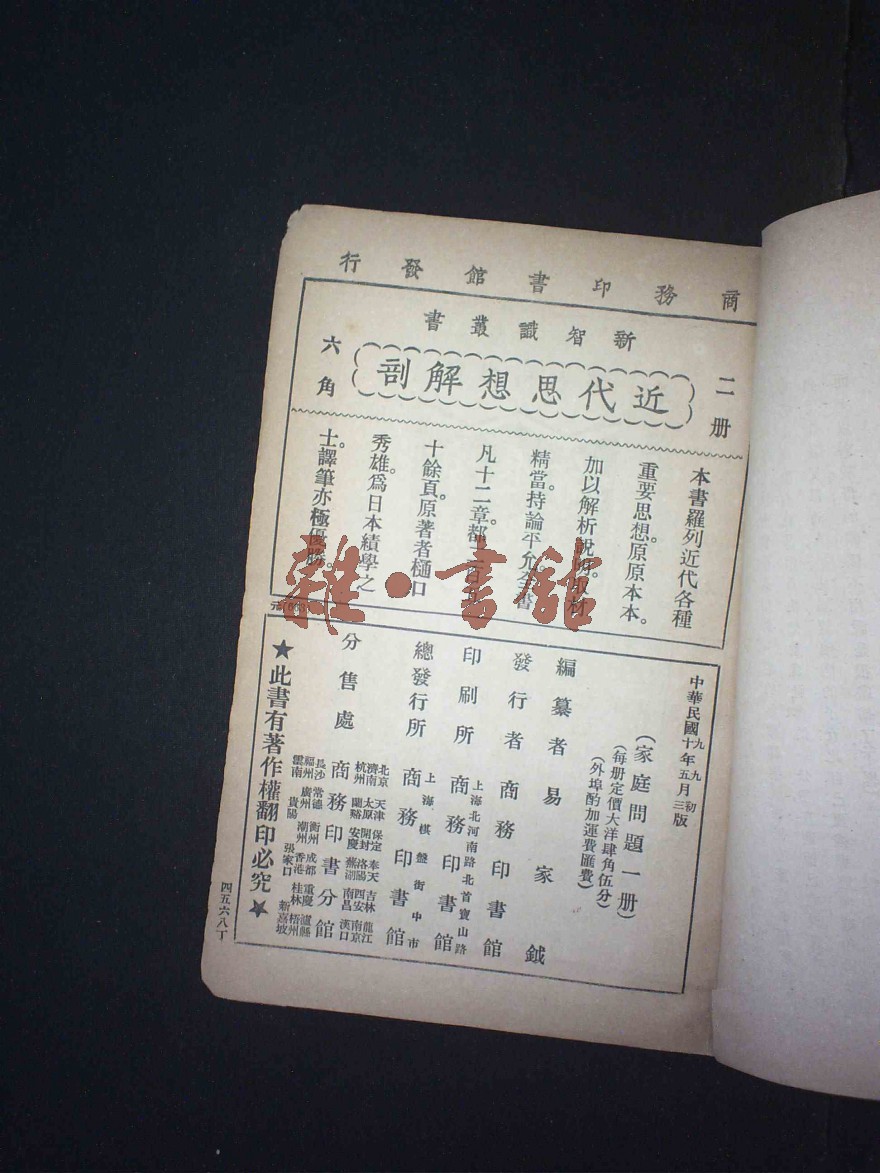 商務印書館發行
新智識叢書
二册
近代思想解剖
六角
本書羅列近代各種
重要思想。原原本本。
加以解析說明。取材
精當。持論平允。全書
凡十二章。都
十餘頁。原著者樋口
秀雄。爲日本績學之
士。譯筆亦極優勝。
雜·書館
中華民國九年九月初版
十年五月三版
(家庭問題一册)
(每册定價大洋肆角伍分)
(外埠酌加運費匯費)
編纂者 易家鉞
發行者 商務印書館
印刷所 上海北河南路北首寶山路 商務印書館
總發行所 上海棋盤街中市 商務印書館
分售處 商務印書分館
北京 天津 保定 奉天 吉林 龍江
濟南 太原 開封 洛陽 西安 南京
杭州 蘭谿 安慶 蕪湖 南昌 漢口
長沙 常德 衡州 成都 重慶 瀘縣
福州 廣州 潮州 香港 桂林 梧州
雲南 貴陽 張家口 新嘉坡
★此書有著作權翻印必究★
四五六八丁